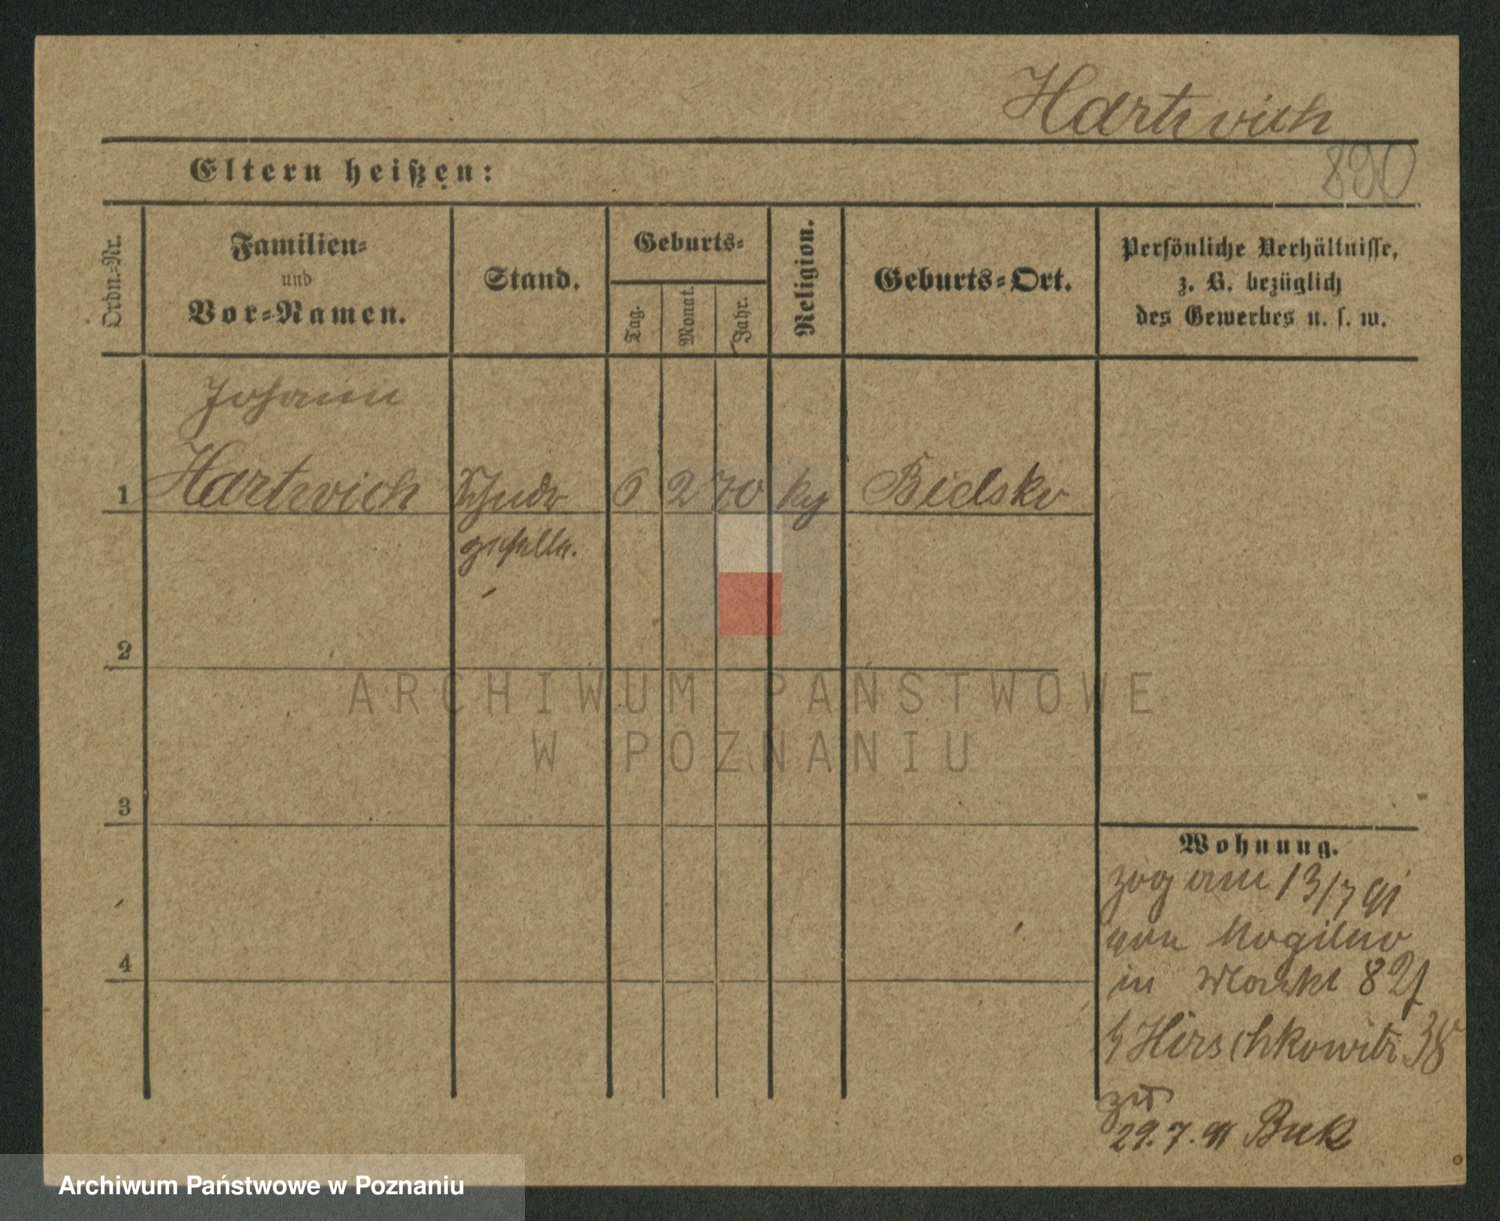 Hartwich
890
Eltern heißen:
Ordn.-Nr.
Familien-
und
Vor-Namen.
Stand.
Geburts-
Tag.
Monat.
Jahr.
Religion.
Geburts-Ort.
Persönliche Verhältnisse,
z. B. bezüglich
des Gewerbes u. s. w.
Johann
1 Hartwich 6 2 70 Bielsko
2
3
4
ARCHIWUM PAŃSTWOWE
W POZNANIU
Wohnung.
zog am 13/7 91
von Mogilno
in Markt 82
Hirschkowitz 38
zu
29.7.91 Buk
Archiwum Państwowe w Poznaniu